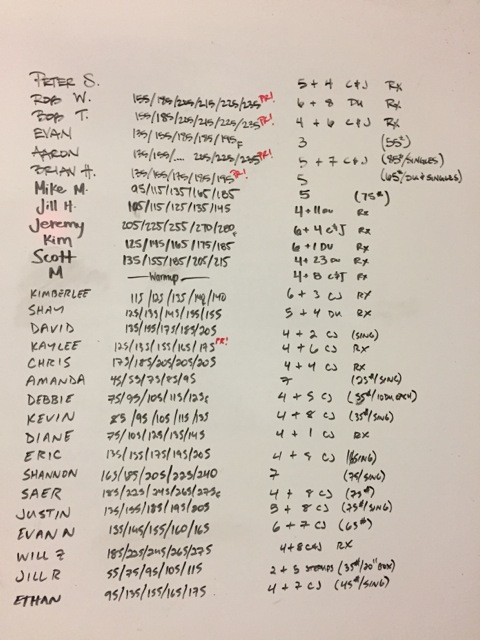 PETER S. 5 + 4 C&J RX
ROB W. 155/185/205/215/225/235 PR! 6 + 8 DU RX
BOB T. 155/185/205/215/225/235 PR! 4 + 6 C&J RX
EVAN 135/155/175/185/195F 3 (55#)
AARON 135/155/... 205/225/235 PR! 5 + 7 C&J (85#/SINGLES)
BRIAN H. 135/155/175/185/195 PR! 5 (65#/DU & SINGLES)
Mike M. 95/115/135/165/185 5 (75#)
Jill H. 105/115/125/135/145 4 + 11 DU RX
Jeremy 205/225/255/270/280F 6 + 4 C&J RX
Kim 125/145/165/175/185 6 + 1 DU RX
Scott 135/155/185/205/215 4 + 23 DU RX
M — Warmup — 4 + 8 C&J RX
KIMBERLEE 115/125/135/140/140 6 + 3 CJ RX
SHAY 125/135/145/155/155 5 + 4 DU RX
DAVID 135/155/175/185/205 4 + 2 CJ (SING)
KAYLEE 125/135/155/165/175 PR! 4 + 6 CJ RX
CHRIS 175/185/205/205/205 4 + 4 CJ RX
AMANDA 45/55/75/85/95 7 (25#/SING)
DEBBIE 75/95/105/115/125F 4 + 5 CJ (35#/10 DU EACH)
KEVIN 85/95/105/115/135 4 + 8 CJ (35#/SING)
DIANE 75/105/125/135/145 4 + 1 CJ RX
ERIC 135/155/175/195/205 4 + 9 CJ
SHANNON 165/185/205/225/240 7 (75/SING)
SAER 185/225/245/265/275F 4 + 8 CJ (75#)
JUSTIN 135/155/185/195/205 5 + 8 CJ (75#/SING)
EVAN N 135/145/155/160/165 6 + 7 CJ (65#)
WILL Z 185/225/245/265/275 4 + 8 C&J RX
JILL R 55/75/95/105/115 2 + 5 STEPUPS (35#/20" BOX)
ETHAN 95/135/155/165/175 4 + 7 CJ (45#/SING)